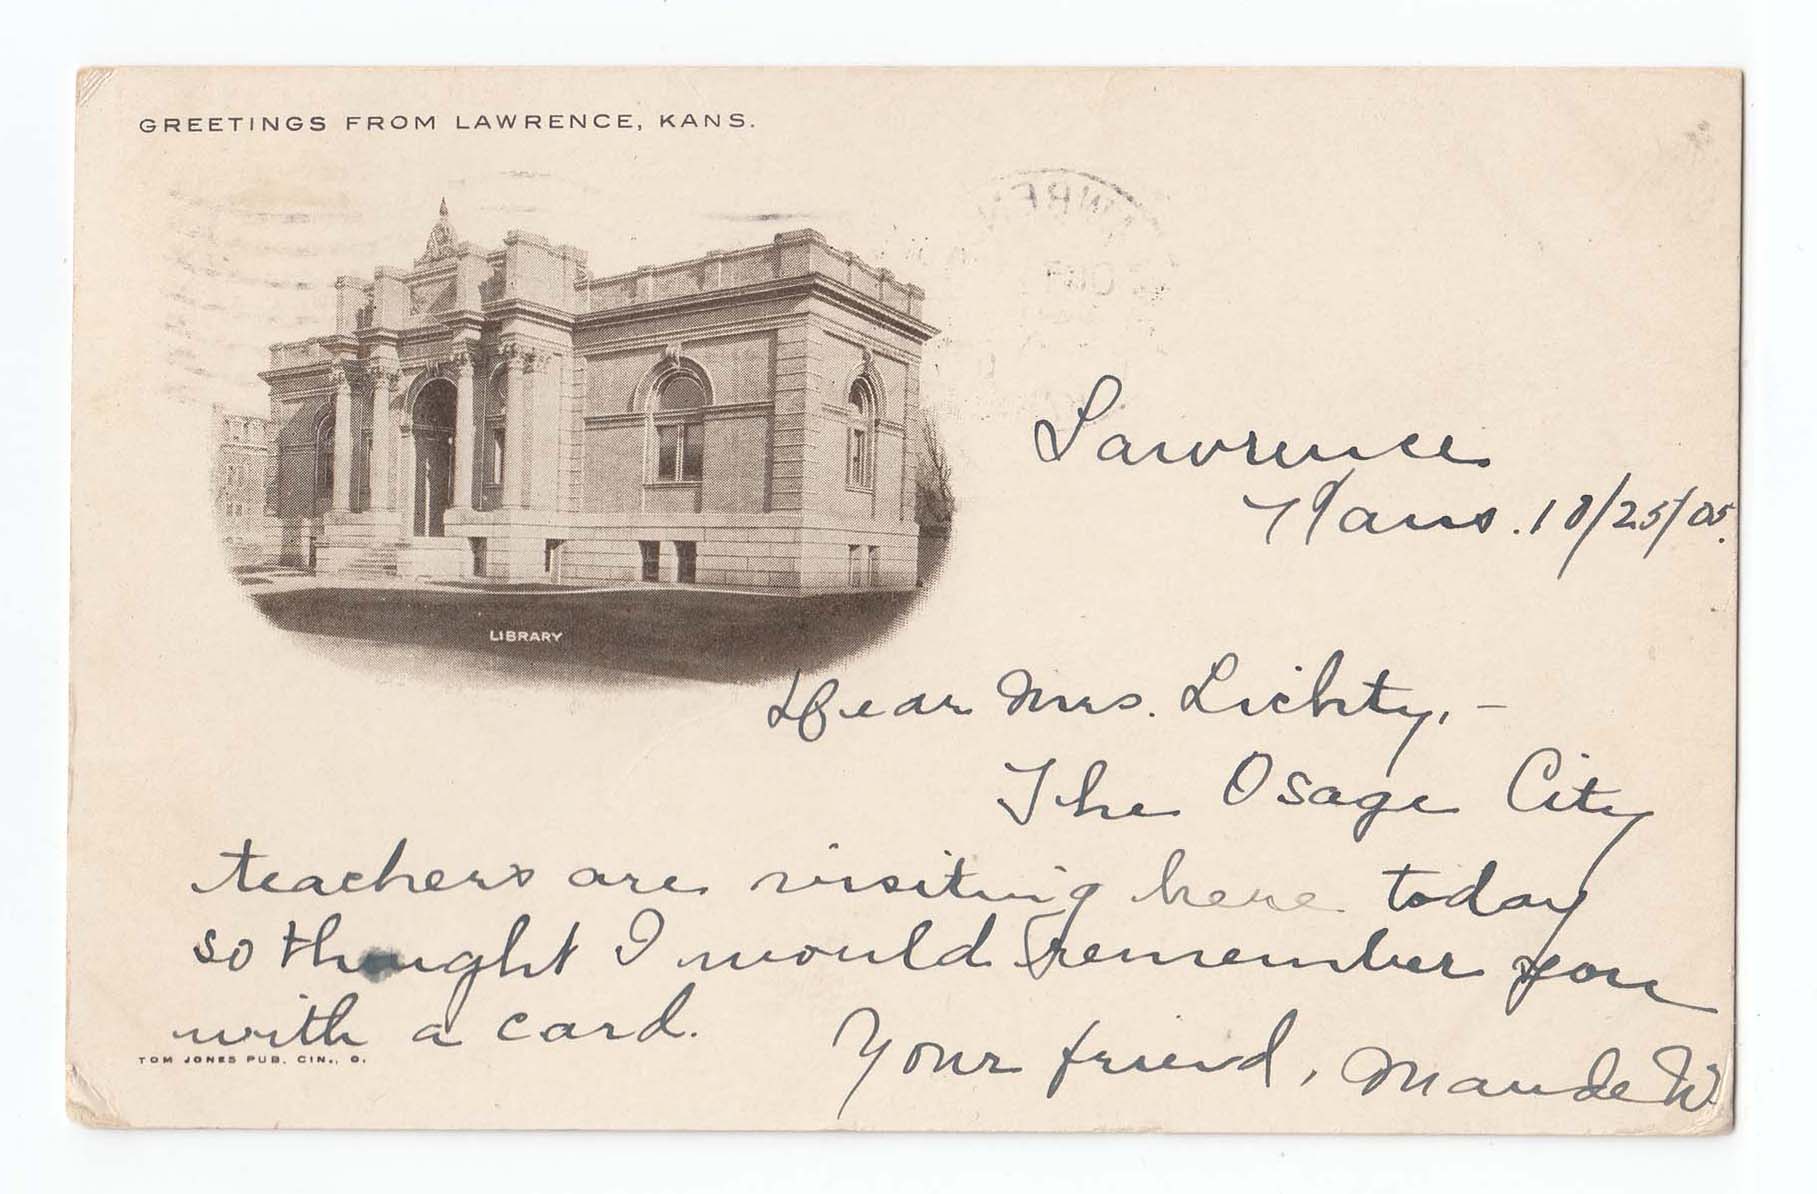 GREETINGS FROM LAWRENCE, KANS.
LIBRARY
Lawrence
Kans. 10/25/05.
Dear Mrs. Lichty,-
The Osage City
teachers are visiting here today
so thought I would remember you
with a card.
Your friend, Maude W.
TOM JONES PUB. CIN., O.